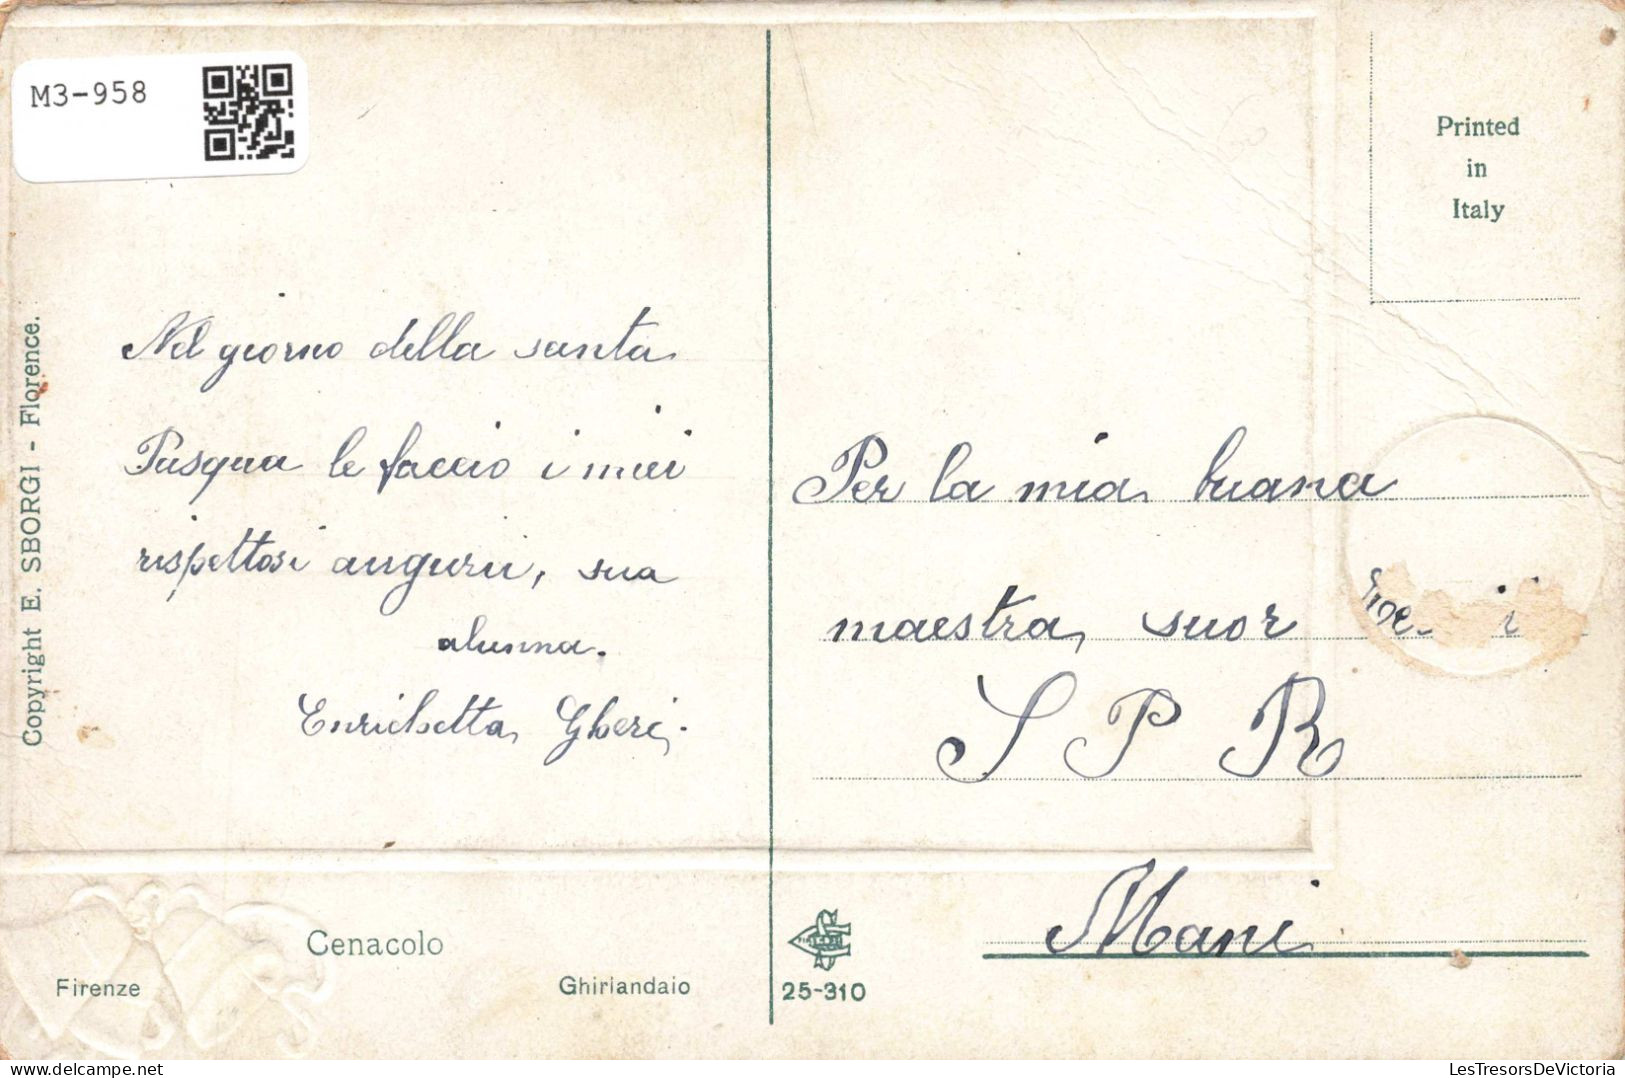 M3-958
Copyright E. SBORGI - Florence.
Nel giorno della santa
Pasqua le faccio i miei
rispettosi augurii, sua
alunna.
Enrichetta Gheri.
Printed
in
Italy
Per la mia buana
maestra, suor
S P R
Mani
Cenacolo
Firenze
Ghirlandaio
25-310
LesTresorsDeVictoria.com